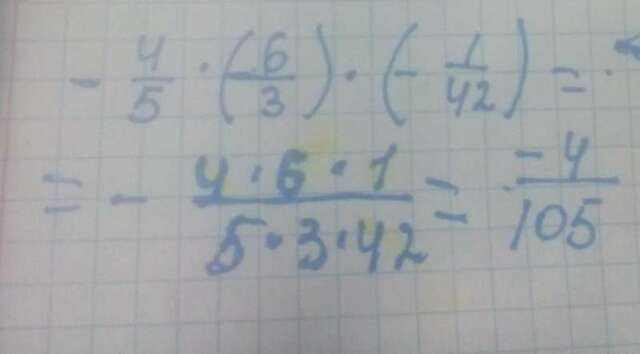 - 4/5 · (-6/3) · (- 1/42) =
= - 4·6·1/5·3·42 = -4/105